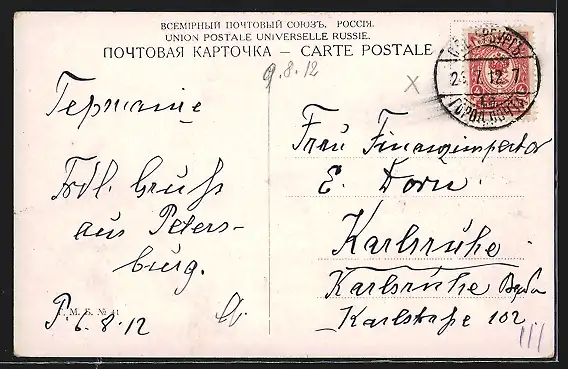 ВСЕМІРНЫЙ ПОЧТОВЫЙ СОЮЗЪ. РОССІЯ.
UNION POSTALE UNIVERSELLE RUSSIE.
ПОЧТОВАЯ КАРТОЧКА – CARTE POSTALE
9.8.12
X
7. 12. 7
ГОРОД. ПОЧТА
Германие
Frdl. Gruß
aus Peters-
burg.
P. 6.8.12
М. Б. № 41
Frau Finanzinspektor
E. Dorn.
Karlsruhe
Karlsruhe
Karlstraße 102